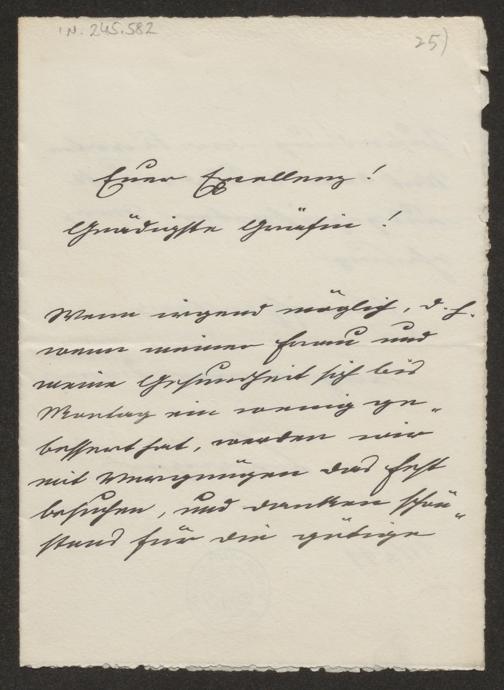 I.N. 245.582
25)
Euer Excellenz!
Gnädigste Gräfin!
Wenn irgend möglich, d. h.
wenn meiner Frau und
meine Gesundheit sich bis
Montag ein wenig ge-
bessert hat, werden wir
mit Vergnügen das Fest
besuchen, und danken schön-
stens für die gütige